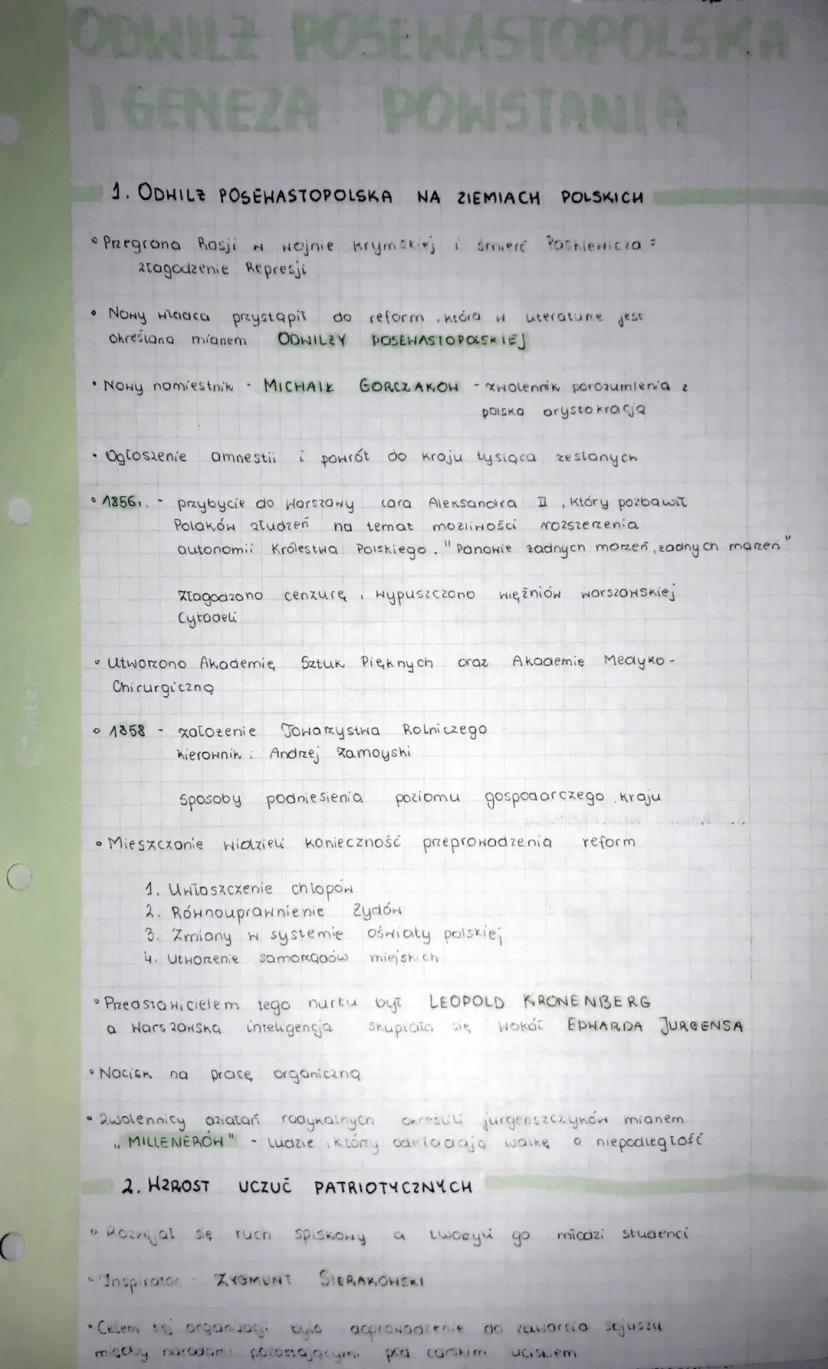 ODWILŻ POSEWASTOPOLSKA
I GENEZA POWSTANIA
1. ODWILŻ POSEWASTOPOLSKA NA ZIEMIACH POLSKICH
Przegrana Rosji w wojnie krymskiej i śmierć Paskiewicza =
złagodzenie Represji
Nowy władca przystąpił do reform, która w literaturze jest
określana mianem ODWILŻY POSEWASTOPOLSKIEJ
Nowy namiestnik - MICHAIŁ GORCZAKOW - zwolennik porozumienia z
polską arystokracją
Ogłoszenie amnestii i powrót do kraju tysiąca zesłanych
1856r. - przybycie do Warszawy cara Aleksandra II, który pozbawił
Polaków złudzeń na temat możliwości rozszerzenia
autonomii Królestwa Polskiego. "Panowie żadnych marzeń, żadnych marzeń"
Złagodzono cenzurę, wypuszczono więźniów warszawskiej
Cytadeli
Utworzono Akademię Sztuk Pięknych oraz Akademię Medyko-
Chirurgiczną
1858 - założenie Towarzystwa Rolniczego
kierownik: Andrzej Zamoyski
sposoby podniesienia poziomu gospodarczego kraju
Mieszczanie widzieli konieczność przeprowadzenia reform
1. Uwłaszczenie chłopów
2. Równouprawnienie Żydów
3. Zmiany w systemie oświaty polskiej
4. Utworzenie samorządów miejskich
Przedstawicielem tego nurtu był LEOPOLD KRONENBERG
a Warszawska inteligencja skupiała się wokół EDWARDA JURGENSA
Nacisk na pracę organiczną
Zwolennicy działań radykalnych określili jurgenszczyków mianem
„MILLENERÓW" - ludzie, którzy odkładają walkę o niepodległość
2. WZROST UCZUĆ PATRIOTYCZNYCH
Rozwijał się ruch spiskowy a tworzyli go młodzi studenci
Inspirator - ZYGMUNT SIERAKOWSKI
Celem tej organizacji było doprowadzenie do zawarcia sojuszu
między narodami pozostającymi pod carskim uciskiem